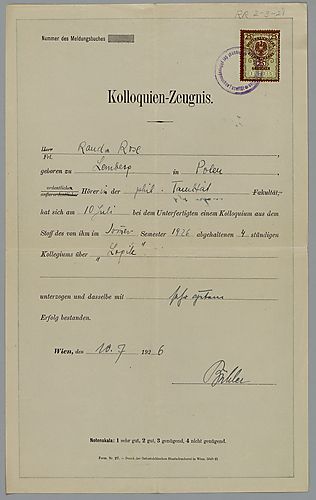 RR 2-3-21
Nummer des Meldungsbuches
Kolloquien-Zeugnis.
Herr Randa Rose
Frl.
geboren zu Lemberg in Polen
ordentlichen
außerordentlichen Hörer in der phil. Fakultät Fakultät,
hat sich am 10 Juli bei dem Unterfertigten einem Kolloquium aus dem
Stoff des von ihm im Sommer Semester 1926 abgehaltenen 4 stündigen
Kollegiums über „Logik"
unterzogen und dasselbe mit sehr gutem
Erfolg bestanden.
Wien, den 10. 7 1926
Bühler
Notenskala: 1 sehr gut, 2 gut, 3 genügend, 4 nicht genügend.
Form. Nr. 27. — Druck der Österreichischen Staatsdruckerei in Wien.